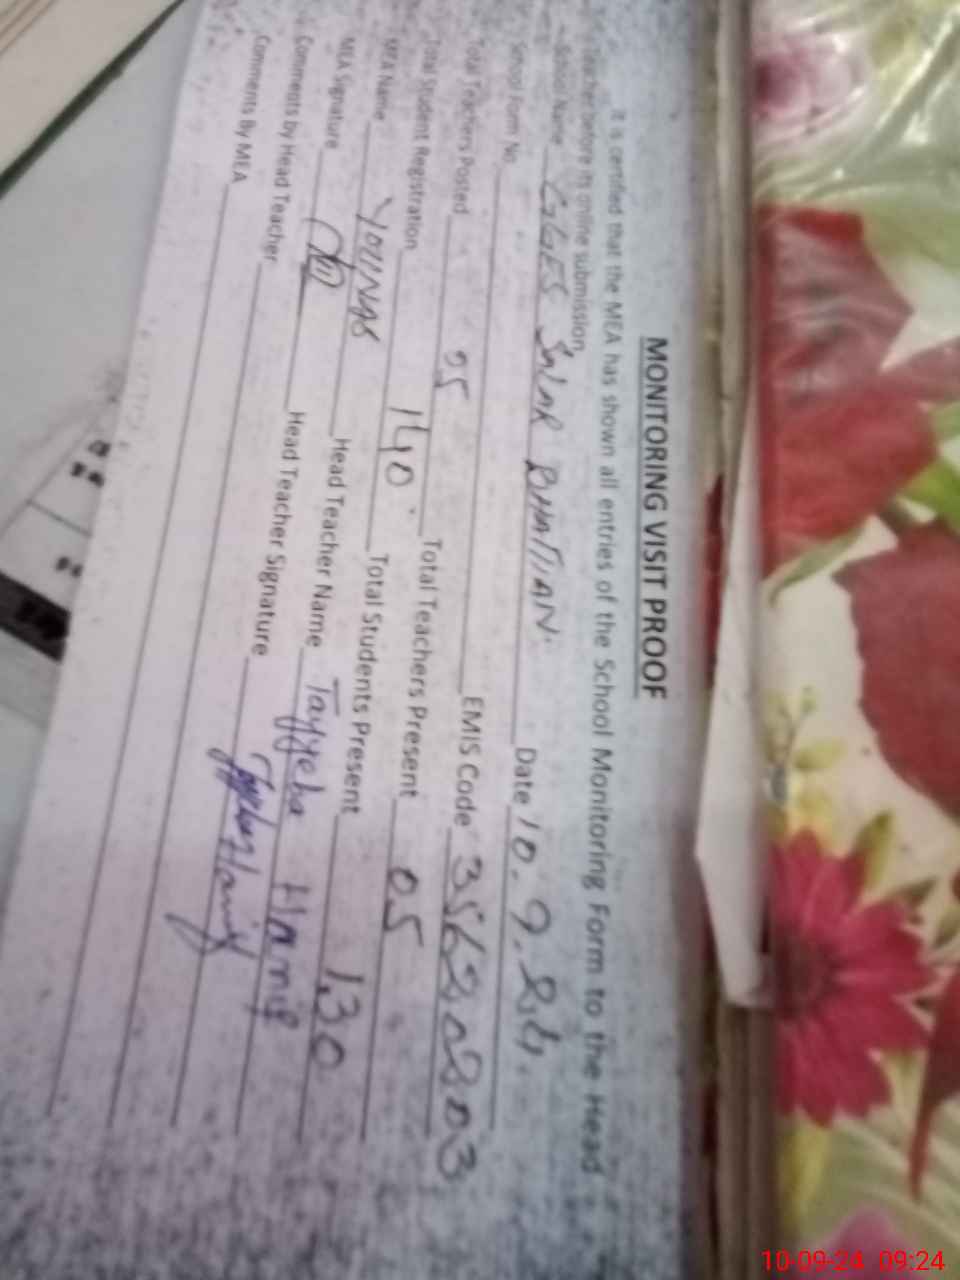 MONITORING VISIT PROOF
It is certified that the MEA has shown all entries of the School Monitoring Form to the Head
Teacher before its online submission.
School Name GGES Salar Bhattian. Date 10.9.24.
School Form No. EMIS Code
Total Teachers Posted 05 Total Teachers Present 05
Total Student Registration 140 Total Students Present 130
MEA Name Younas Head Teacher Name Tayyeba Hanif
MEA Signature Head Teacher Signature Tayyeba Hanif
Comments by Head Teacher
Comments By MEA
10-09-24 09:24